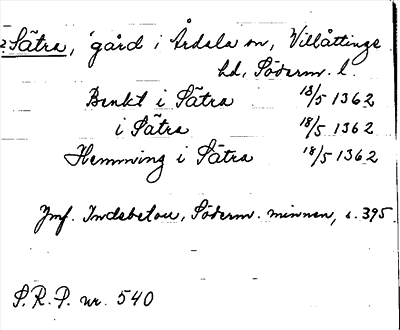 2. Sätra, gård i Årdala sn, Villåttinge
hd, Söderm. l.
Benkt i Sätra 18/5 1362
i Sätra 18/5 1362
Hemming i Sätra 18/5 1362
Jmf. Indebetou, Söderm. minnen, s. 395.
S.R.P. nr. 540